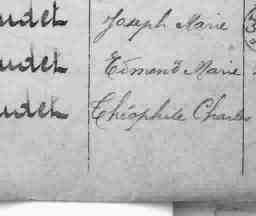 udet Joseph Marie
udet Edmond Marie
udet Théophile Charles